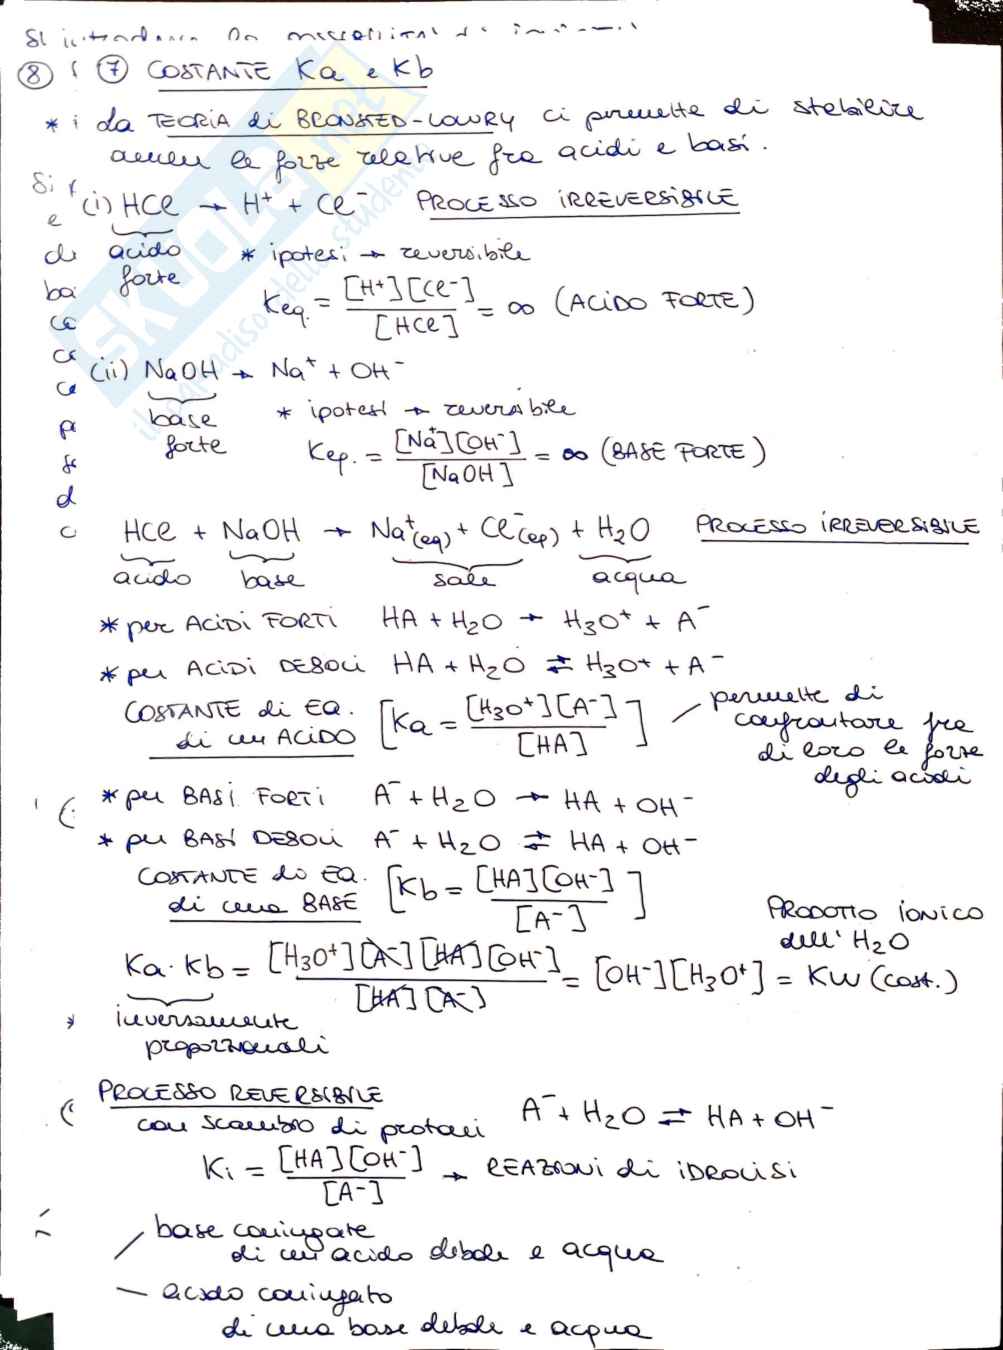 ⑧ ⑦ COSTANTE Ka e Kb
* la TEORIA di BRONSTED-LOWRY ci permette di stabilire
anche le forze relative fra acidi e basi.
(i) HCl → H⁺ + Cl⁻ PROCESSO IRREVERSIBILE
acido forte
* ipotesi → reversibile
Keq. = [H⁺][Cl⁻] / [HCl] = ∞ (ACIDO FORTE)
(ii) NaOH → Na⁺ + OH⁻
base forte
* ipotesi → reversibile
Keq. = [Na⁺][OH⁻] / [NaOH] = ∞ (BASE FORTE)
HCl + NaOH → Na⁺(aq) + Cl⁻(aq) + H₂O PROCESSO IRREVERSIBILE
acido base sale acqua
* per ACIDI FORTI HA + H₂O → H₃O⁺ + A⁻
* per ACIDI DEBOLI HA + H₂O ⇄ H₃O⁺ + A⁻
COSTANTE di EQ.
di un ACIDO
[Ka = [H₃O⁺][A⁻] / [HA]]
permette di
confrontare fra
di loro le forze
degli acidi
* per BASI FORTI A⁻ + H₂O → HA + OH⁻
* per BASI DEBOLI A⁻ + H₂O ⇄ HA + OH⁻
COSTANTE di EQ.
di una BASE
[Kb = [HA][OH⁻] / [A⁻]]
PRODOTTO IONICO
dell' H₂O
Ka · Kb = [H₃O⁺][A⁻][HA][OH⁻] / [HA][A⁻] = [OH⁻][H₃O⁺] = KW (cost.)
inversamente
proporzionali
PROCESSO REVERSIBILE
con scambio di protoni A⁻ + H₂O ⇄ HA + OH⁻
Ki = [HA][OH⁻] / [A⁻] → REAZIONI di IDROLISI
base coniugate
di un acido debole e acqua
acido coniugato
di una base debole e acqua
SKUOLA.net
il paradiso dello studente